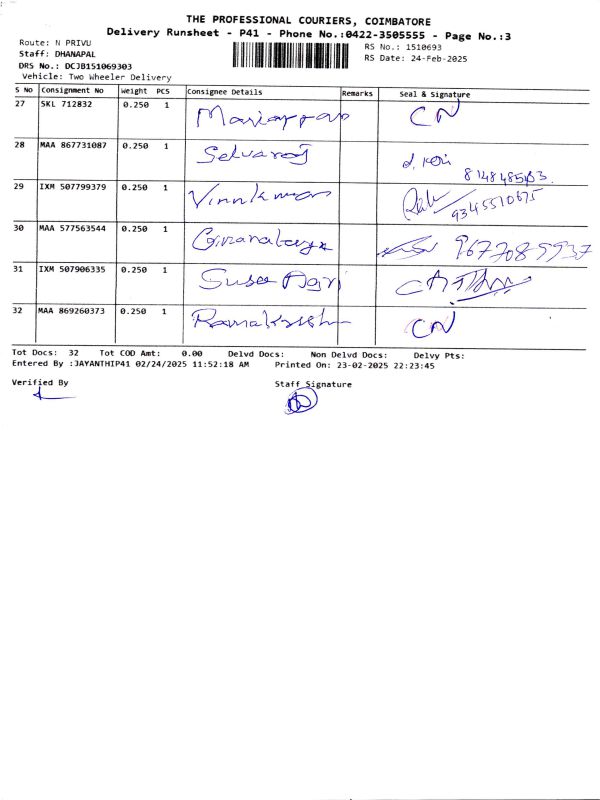 THE PROFESSIONAL COURIERS, COIMBATORE
Delivery Runsheet - P41 - Phone No.:0422-3505555 - Page No.:3
Route: N PRIVU
RS No.: 1510693
Staff: DHANAPAL
RS Date: 24-Feb-2025
DRS No.: DCJB151069303
Vehicle: Two Wheeler Delivery
S No Consignment No Weight PCS Consignee Details Remarks Seal & Signature
27 SKL 712832 0.250 1 Mariappan CN
28 MAA 867731087 0.250 1 Selvaraj
29 IXM 507799379 0.250 1 9345510675
30 MAA 577563544 0.250 1
31 IXM 507906335 0.250 1
32 MAA 869260373 0.250 1 Ramakrish CN
Tot Docs: 32 Tot COD Amt: 0.00 Delvd Docs: Non Delvd Docs: Delvy Pts:
Entered By :JAYANTHIP41 02/24/2025 11:52:18 AM Printed On: 23-02-2025 22:23:45
Verified By
Staff Signature